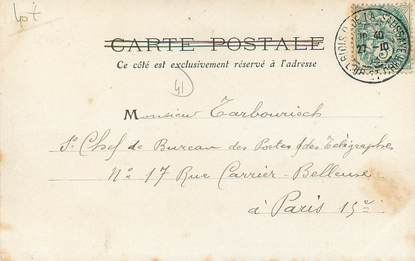 Lot
CARTE POSTALE
Ce côté est exclusivement réservé à l'adresse
41
Monsieur Tarbouriech
S. Chef de Bureau des Postes & des Télégraphes
No 17 Rue Carrier-Belleuse
à Paris 15e